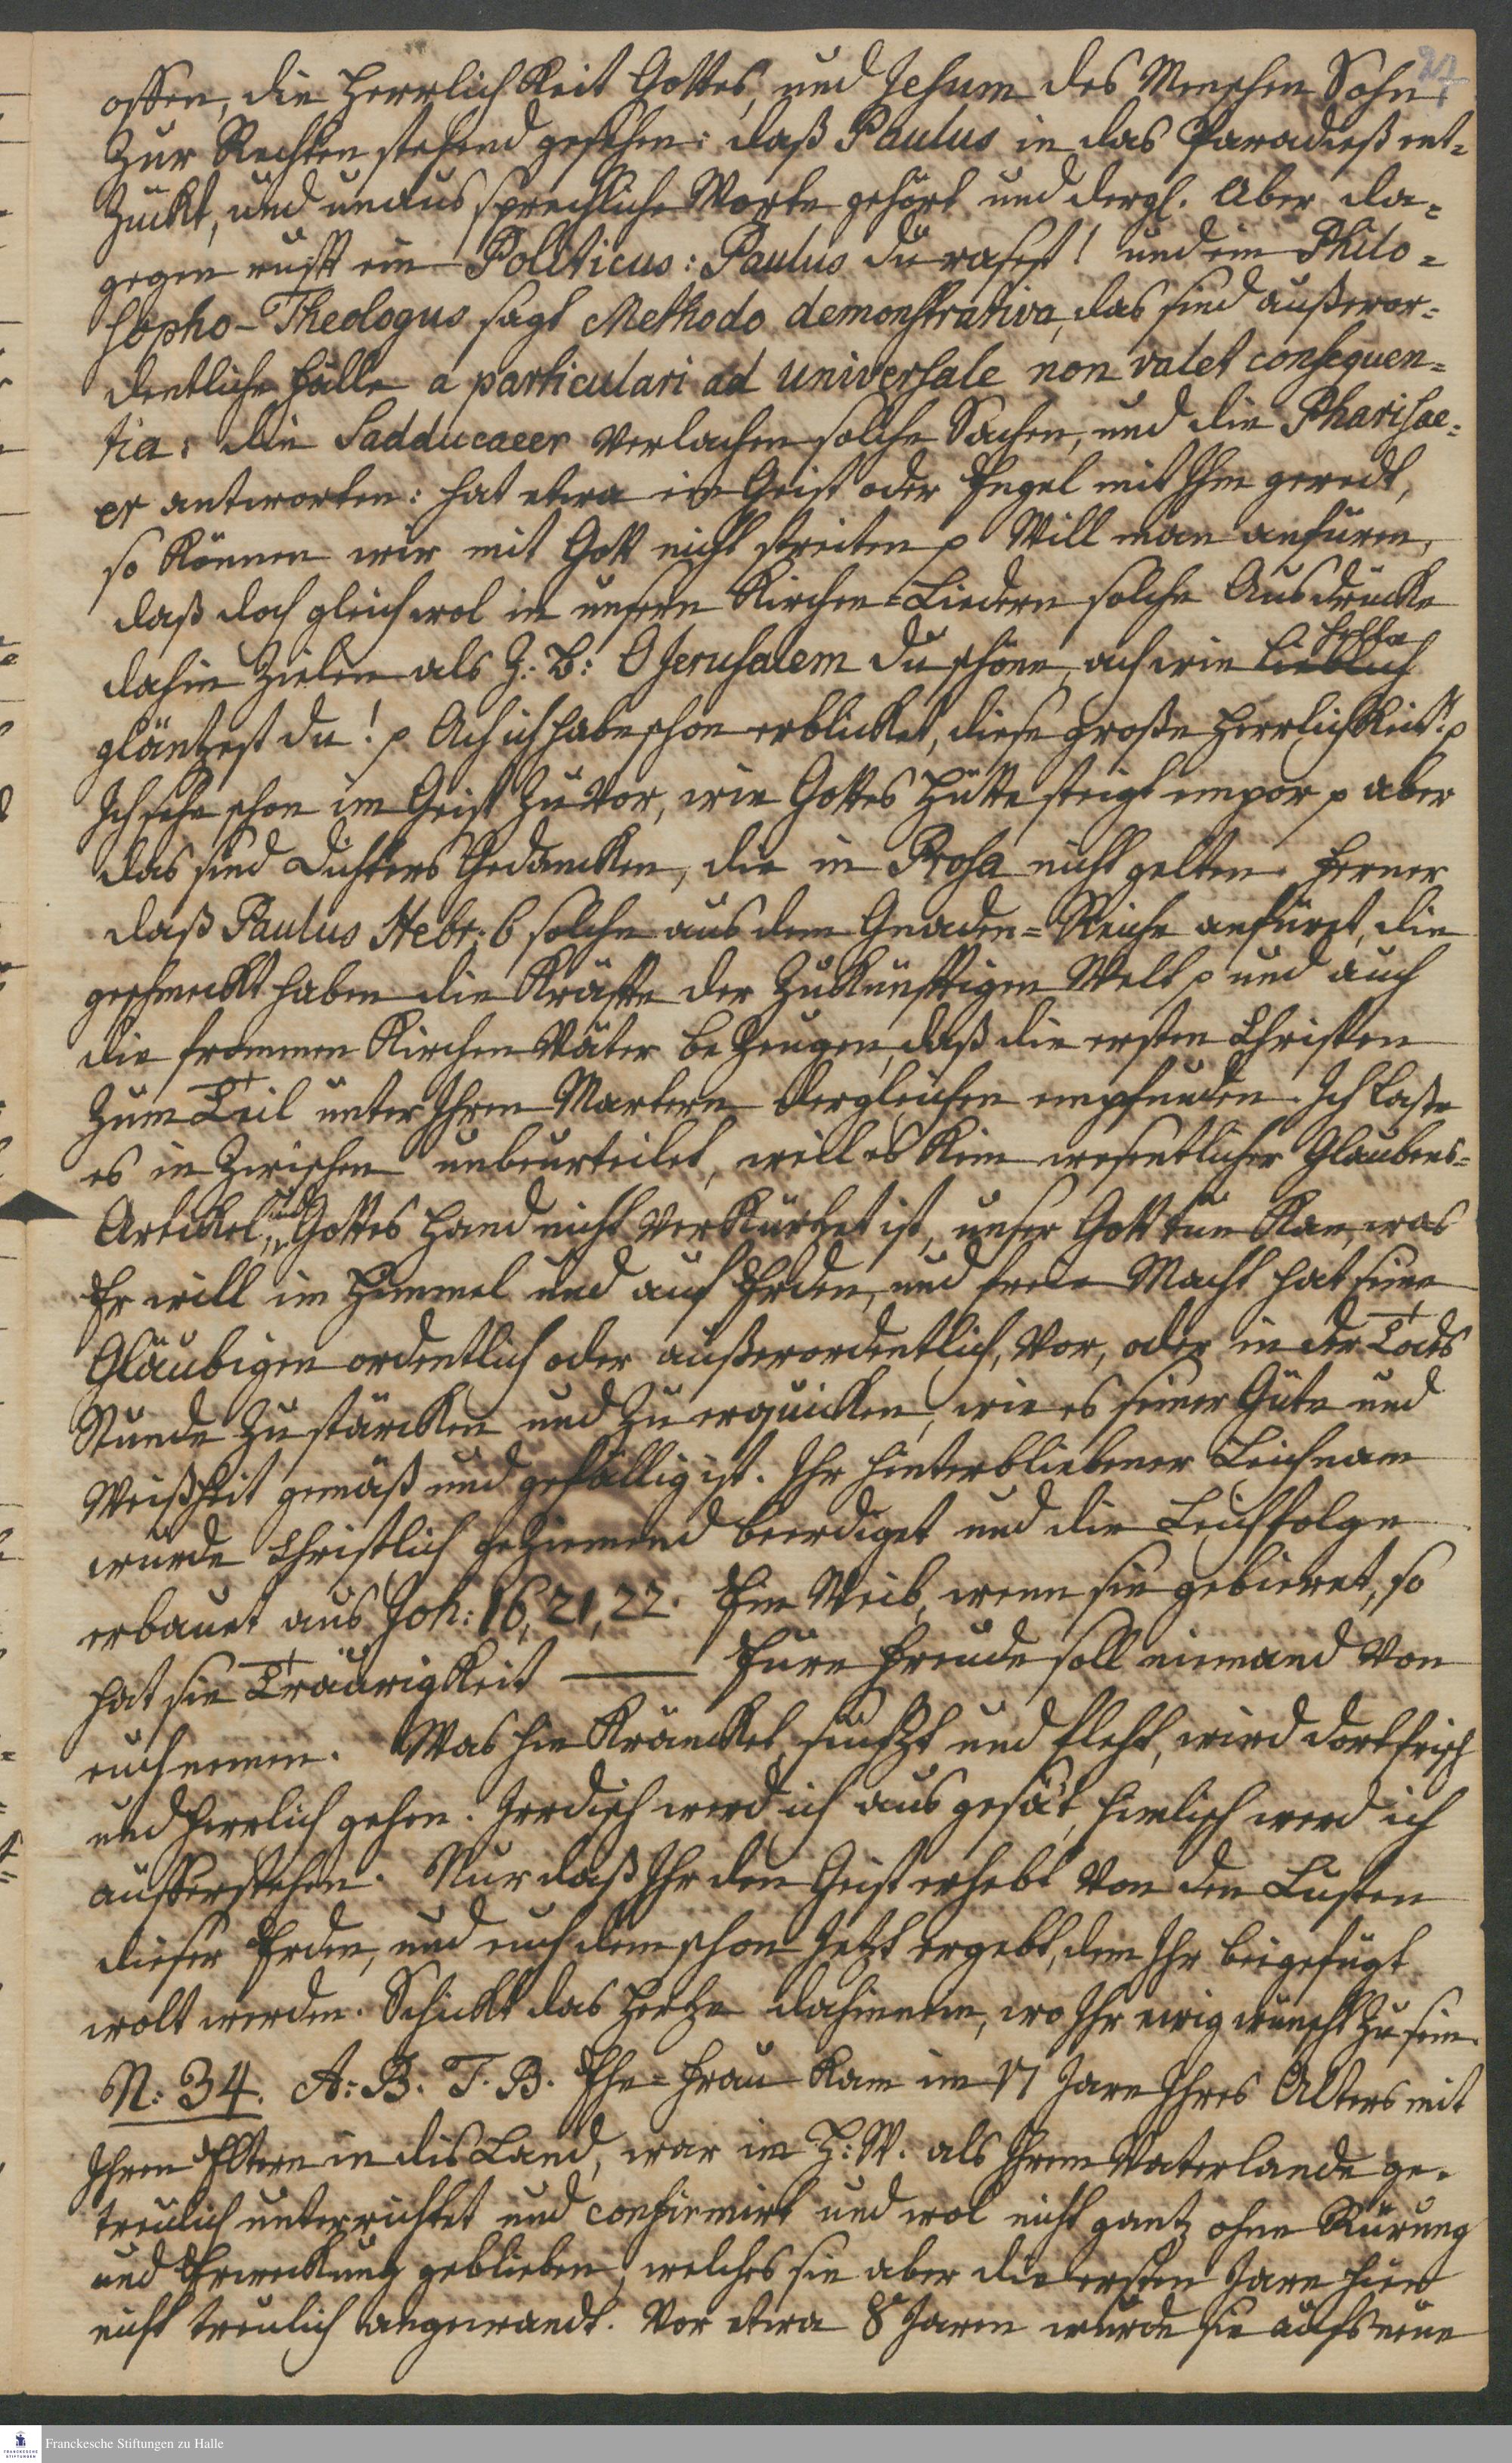 27
offen, die Herrlichkeit Gottes, und Jesum des Menschen Sohn
Zur Rechten stehend gesehen: daß Paulus in das Paradieß ent-
zückt, und unaussprechliche Worte gehört und dergl. Aber da-
gegen rufft ein Politicus: Paulus du rasest! und ein Philo-
sopho-Theologus sagt Methodo demonstrativa, das sind außeror-
dentliche Fälle a particulari ad universale non valet consequen-
tia: die Sadducaeer verlachen solche Sachen, und die Pharisae-
er antworten: hat etwa ein Geist oder Engel mit Ihm geredt,
so können wir mit Gott nicht streiten p Will man anfüren,
daß doch gleichwol in unsern Kirchen-Liedern solche Ausdrücke
helle
dahin zielen als Z. B: O Jerusalem du schöne, ach wie lieblich
gläntzest du! p Ach ich habe schon erblicket, diese große Herrlichkeit: p
Ich sehe schon im Geist zuvor, wie Gottes Hütte steigt empor p aber
das sind Dichters Gedancken, die in Prosa nicht gelten. Ferner
daß Paulus Hebr: 6 solche aus dem Gnaden-Reiche anfüret, die
geschmeckt haben die Kräffte der zukünfftigen Welt p und auch
die frommen Kirchen Väter bezeugen, daß die ersten Christen
zum Teil unter Ihren Martern dergleichen empfunden. Ich laße
es inzwischen unbeurteilet, weil es kein wesentlicher Glaubens-
Artickel, und Gottes Hand nicht verkürtzet ist, unser Gott tun kan, was
Er will im Himmel und auf Erden, und freie Macht hat seine
Gläubigen ordentlich oder außerordentlich, vor, oder in der Todes
Stunde zu stärcken und zu erquicken, wie es seiner Güte und
Weißheit gemäß und gefällig ist. Ihr hinterbliebener Leichnam
wurde Christlich geziemend beerdiget und die Leichfolge
erbauet aus Joh: 16, 21, 22. Ein Weib, wenn sie gebieret, so
hat sie Traurigkeit — Eure Freude soll niemand von
euch nemen. Was hie kräncket, seuffzt und fleht, wird dort frisch
und herrlich gehen. Irrdisch werd ich ausgesät, himlisch werd ich
aufferstehen. Nur daß Ihr den Geist erhebt von den Lusten
dieser Erden, und euch dem schon jetzt ergebt, dem Ihr beigefügt
wolt werden. Schickt das Hertze dahinein, wo Ihr ewig wünscht zu sein.
N: 34. A: B. T. B. Ehe-Frau kam im 17 Jare Ihres Alters mit
Ihren Eltern in dis Land, war im H: W. als Ihrem Vaterlande ge-
treulich unterrichtet und confirmirt und wol nicht gantz ohne Rürung
und Erweckung geblieben, welches sie aber die ersten Jare hier
nicht treulich angewandt. Vor etwa 8 Jaren wurde sie aufs neue
Franckesche Stiftungen zu Halle